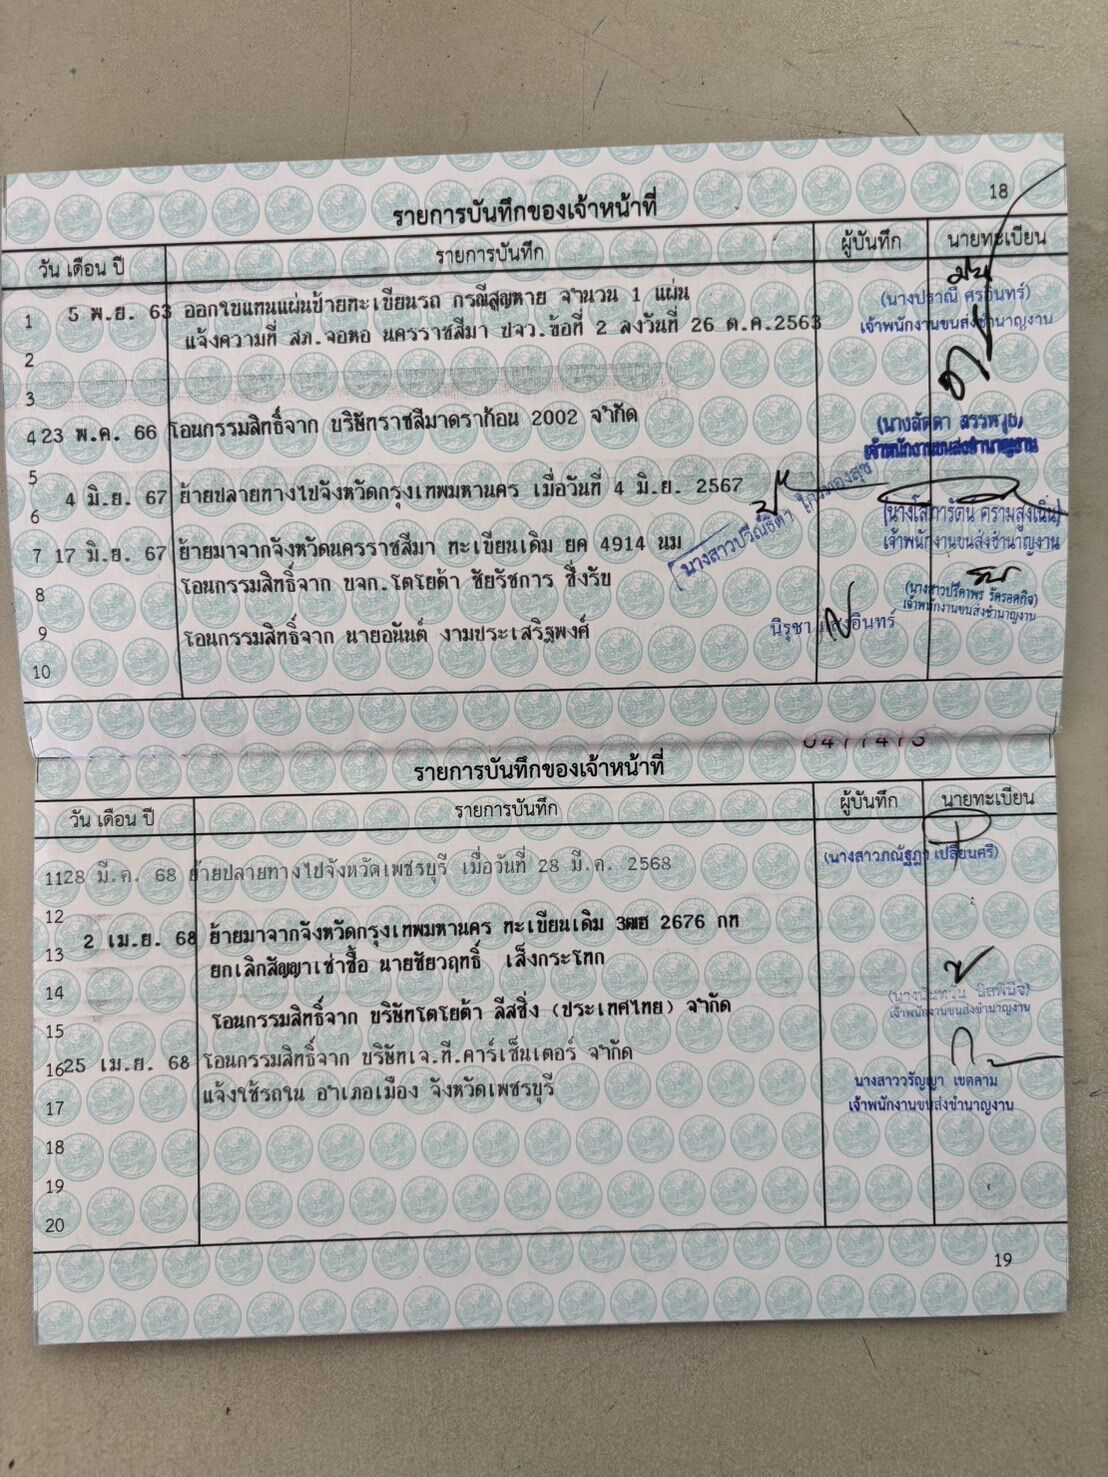 18
รายการบันทึกของเจ้าหน้าที่
วัน เดือน ปี รายการบันทึก ผู้บันทึก นายทะเบียน
1 5 พ.ย. 63 ออกใบแทนแผ่นป้ายทะเบียนรถ กรณีสูญหาย จำนวน 1 แผ่น
(นางปราณี ศรอินทร์)
เจ้าพนักงานขนส่งชำนาญงาน
2 แจ้งความที่ สภ.จอหอ นครราชสีมา ปจว.ข้อที่ 2 ลงวันที่ 26 ต.ค.2563
3
4 23 พ.ค. 66 โอนกรรมสิทธิ์จาก บริษัทราชสีมาดราก้อน 2002 จำกัด
(นางลัดดา
เจ้าพนักงานขนส่งชำนาญงาน
5
6 4 มิ.ย. 67 ย้ายปลายทางไปจังหวัดกรุงเทพมหานคร เมื่อวันที่ 4 มิ.ย. 2567
เจ้าพนักงานขนส่งชำนาญงาน
7 17 มิ.ย. 67 ย้ายมาจากจังหวัดนครราชสีมา ทะเบียนเดิม ยค 4914 นม
8 โอนกรรมสิทธิ์จาก บจก.โตโยต้า ชัยรัชการ ซึ่งรับ
(นางสาวปรีดาพร รัครอดกิจ)
เจ้าพนักงานขนส่งชำนาญงาน
9 โอนกรรมสิทธิ์จาก นายอนันต์ งามประเสริฐพงศ์
นิรุชา
10
รายการบันทึกของเจ้าหน้าที่
วัน เดือน ปี รายการบันทึก ผู้บันทึก นายทะเบียน
11 28 มี.ค. 68 ย้ายปลายทางไปจังหวัดเพชรบุรี เมื่อวันที่ 28 มี.ค. 2568
(นางสาวภณัฐฎา เปลี่ยนศรี)
12
13 2 เม.ย. 68 ย้ายมาจากจังหวัดกรุงเทพมหานคร ทะเบียนเดิม 3ฒฮ 2676 กท
14 ยกเลิกสัญญาเช่าซื้อ นายชัยวฤทธิ์ เส็งกระโทก
เจ้าพนักงานขนส่งชำนาญงาน
15 โอนกรรมสิทธิ์จาก บริษัทโตโยต้า ลีสซิ่ง (ประเทศไทย) จำกัด
16 25 เม.ย. 68 โอนกรรมสิทธิ์จาก บริษัทเจ.ที.คาร์เซ็นเตอร์ จำกัด
17 แจ้งใช้รถใน อำเภอเมือง จังหวัดเพชรบุรี
นางสาววรัญญา เขตคาม
เจ้าพนักงานขนส่งชำนาญงาน
18
19
20
19